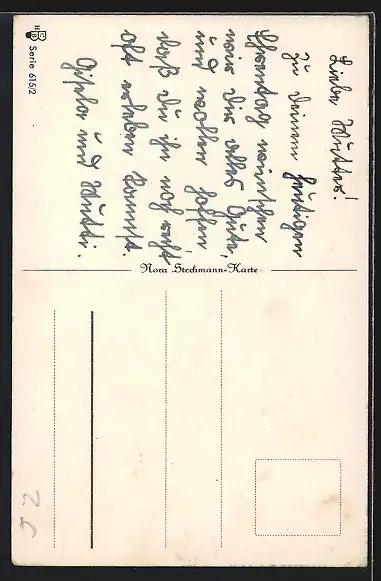 Liebe Mutter!
Zu deinem heutigen
Ehrentag wünschen
wir Dir alles Gute,
und wollen hoffen,
daß du ihn noch recht
oft erleben kannst.
Gisela und Mutti.
Nora Stechmann-Karte
Serie 615/2